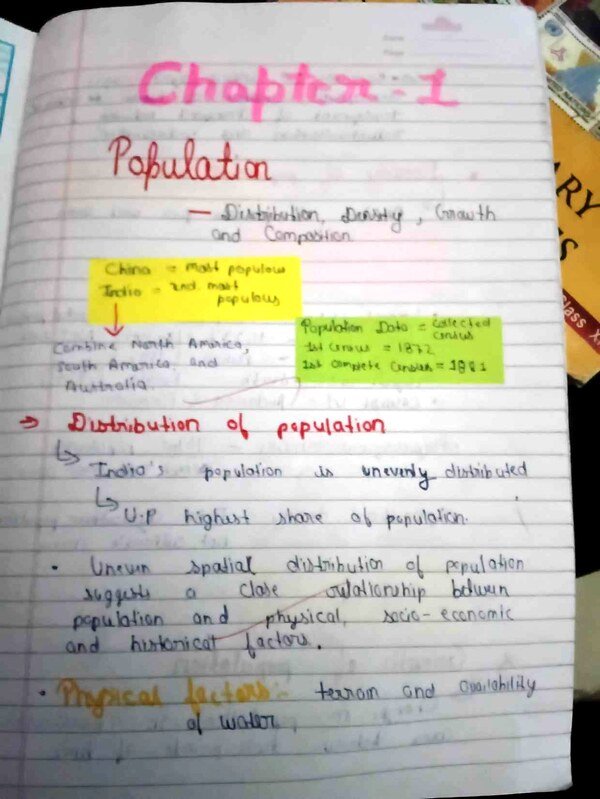 Chapter - 1
Population
— Distribution, Density, Growth
and Composition
China = most populous
India = 2nd most
populous
Combine North America,
South America and
Australia
Population Data = collected
census
1st census = 1872
1st complete census = 1881
→ Distribution of population
↳ India's population is unevenly distributed
↳ U.P highest share of population.
• Uneven spatial distribution of population
suggests a close relationship between
population and physical, socio-economic
and historical factors.
• Physical factors:- terrain and availability
of water.
ARY
Class X